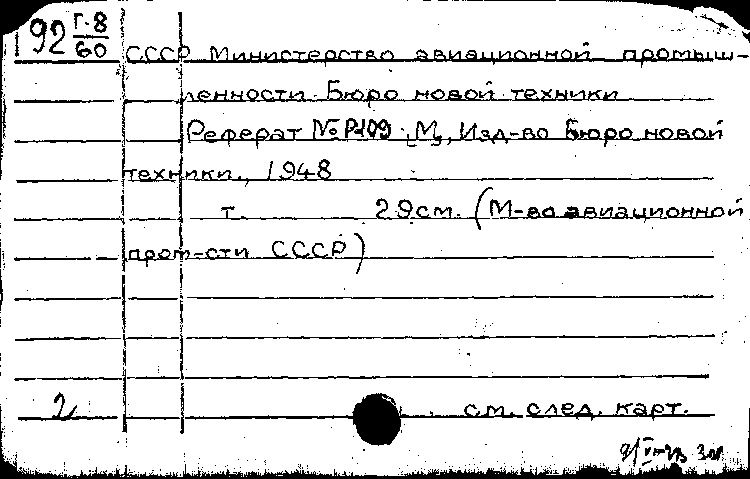 192 Г-8/60
СССР Министерство авиационной промыш-
ленности. Бюро новой техники
Реферат № Р-109. М., Изд-во Бюро новой
техники., 1948
т. 29см. (М-во авиационной
пром-сти СССР)
2 см. след. карт.